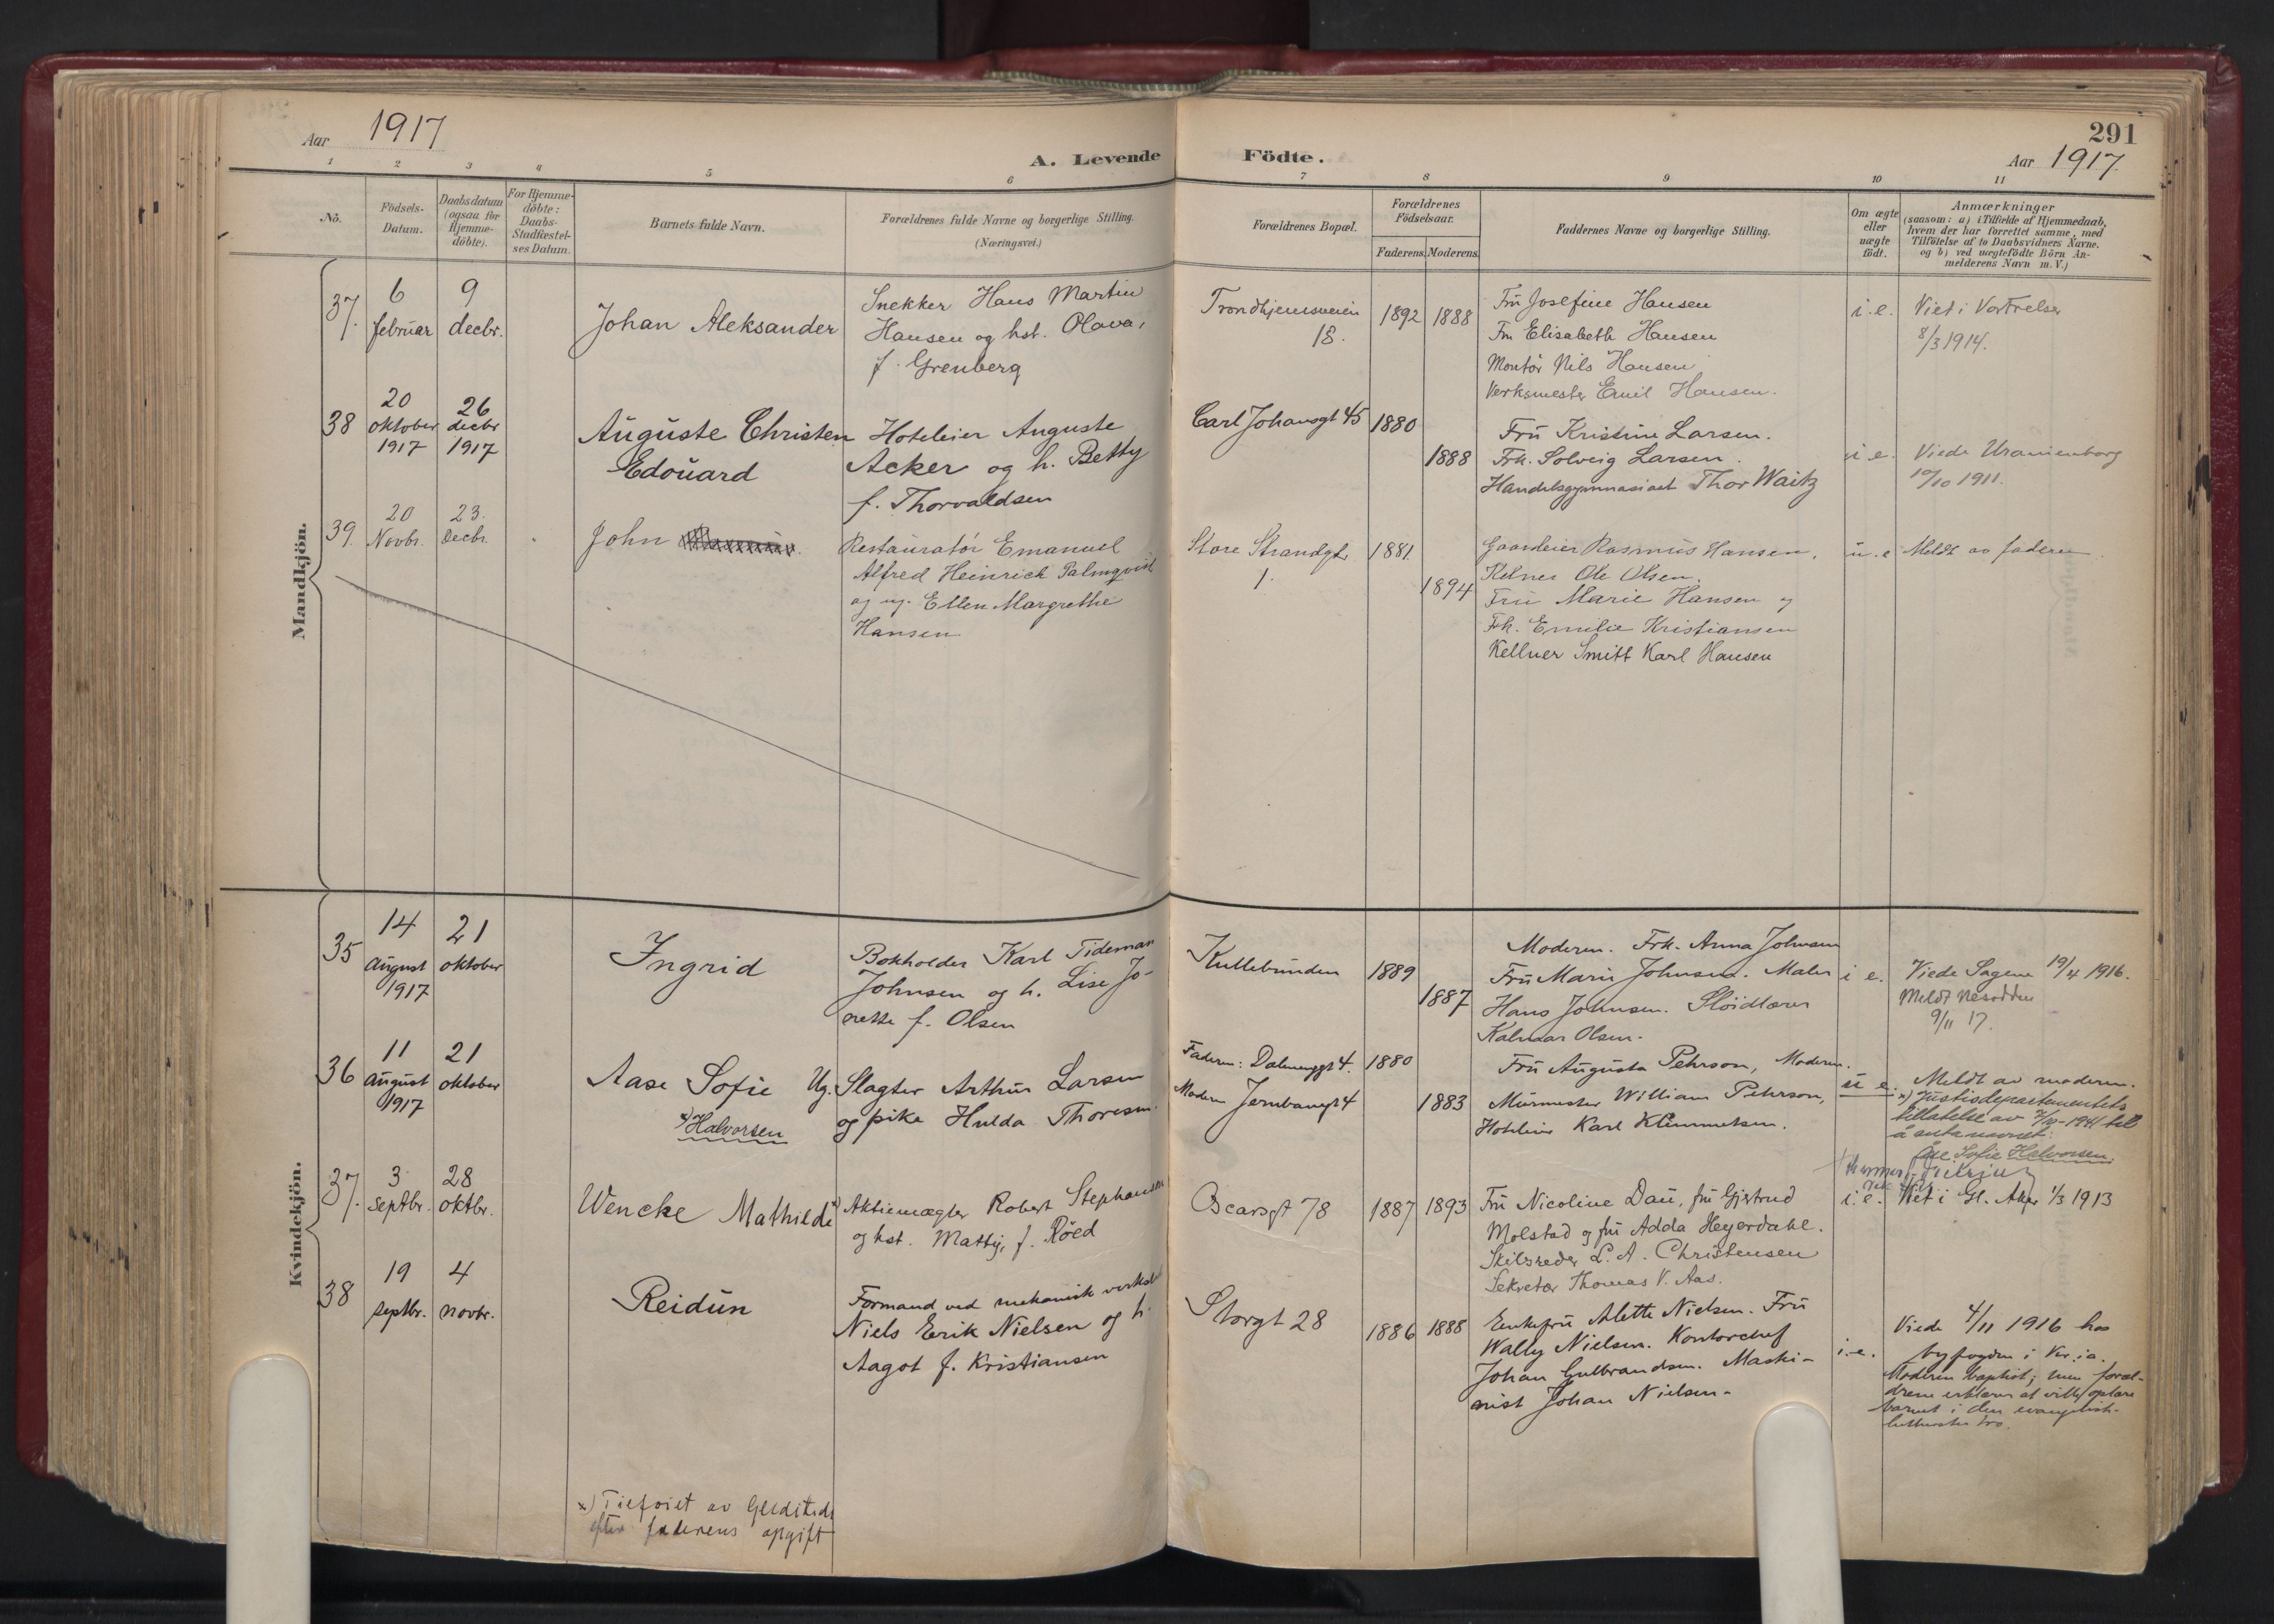 Aar 1917
A. Levende
1 2 3 4 5 6
No.
Födsels-
Datum.
Daabsdatum
(ogsaa for
Hjemme-
döbte).
For Hjemme-
döbte:
Daabs-
Stadfæstel-
ses Datum.
Barnets fulde Navn.
Forældrenes fulde Navne og borgerlige Stilling.
(Næringsvei.)
291
Födte.
Aar 1917.
7 8 9 10 11
Forældrenes Bopæl.
Forældrenes
Födselsaar.
Faderens. Moderens.
Faddernes Navne og borgerlige Stilling.
Om ægte
eller
uægte
födt.
Anmærkninger
(saasom: a) i Tilfælde af Hjemmedaab,
hvem der har forrettet samme, med
Tilföielse af to Daabsvidners Navne.
og b) ved uægtefödte Börn An-
melderens Navn m. V.)
Mandkjön.
37.
6
februar
9
decbr.
Johan Aleksander
Snekker Hans Martin
Hansen og hst. Olava,
f. Grenberg
Trondhjemsveien
18.
1892 1888
Fru Josefine Hansen
Fru Elisabeth Hansen
Montör Nils Hansen
Verksmester Emil Hansen.
i. e.
Viet i Vor Frelser
8/3 1914.
38
20
oktober
1917
26
decbr
1917
Auguste Christen
Edouard
Hoteleier Auguste
Acker og h. Betty
f. Thorvaldsen
Carl Johansgt 45
1880
1888
Fru Kristine Larsen.
Frk. Solveig Larsen.
Handelsgymnasiast Thor Waitz
i e.
Viede Uranienborg
10/10 1911.
39.
20
Novbr.
23.
decbr.
John
Restauratör Emanuel
Alfred Heinrich Palmqvist
og ug. Ellen Margrethe
Hansen
Store Strandgt.
1.
1881.
1894
Gaardeier Rasmus Hansen,
Kelner Ole Olsen.
Fru Marie Hansen og
Frk. Emilie Kristiansen
Kellner Smitt Karl Hansen
u. e
Meldt av faderen.
Kvindekjön.
35
14
august
1917
21
oktober
Ingrid
Bokholder Karl Tideman
Johnsen og h. Lise Jo-
nette f. Olsen
Kullebunden
1889
1887
Moderen. Frk. Anna Johnsen
Fru Marie Johnsen. Maler
Hans Johnsen. Slöidlærer
Kalmar Olsen.
i e.
Viede Sagene 19/4 1916.
Meldt Nesodden
9/11 17.
36
11
august
1917
21
oktober
Aase Sofie
x) Halvorsen
Ug. Slagter Arthur Larsen
og pike Hulda Thoresen.
Faderen: 4.
Moderen Jernbanegt 4
1880
1883
Fru Augusta Pehrson, Moderen.
Murmester William Pehrson,
Hoteleier Karl Klemmetsen.
u e.
Meldt av moderen.
x) Justisdepartementets
tillatelse av 1941 til
å anta navnet:
Åse Sofie Halvorsen.
37.
3
septbr.
28
oktbr.
Wencke Mathilde x)
Aktiemægler Robert Stephansen
og hst. Matty, f. Röed
Oscarsgt 78
1887 1893
Fru Nicoline Dau, fru Gjertrud
Molstad og fru Adda Heyerdahl.
Skibsreder L. A. Christensen
Sekretær Thomas V. Aas.
i. e.
Viet i Gl. Aker 1/3 1913
38
19
septbr.
4
novbr.
Reidun
Formand ved mekanisk verksted
Niels Erik Nielsen og h.
Aagot f. Kristiansen
Storgt 28
1886 1888
Enkefru Alette Nielsen. Fru
Wally Nielsen. Kontorchef
Johan Gulbrandsen. Maski-
nist Johan Nielsen.
i. e.
Viede 4/11 1916 hos
byfogden i Kr.ia.
Moderen baptist; men foræl-
drene erklærer at ville oplære
barnet i den evangelisk-
lutherske tro.
x) Tilföiet av
efter faderens opgift